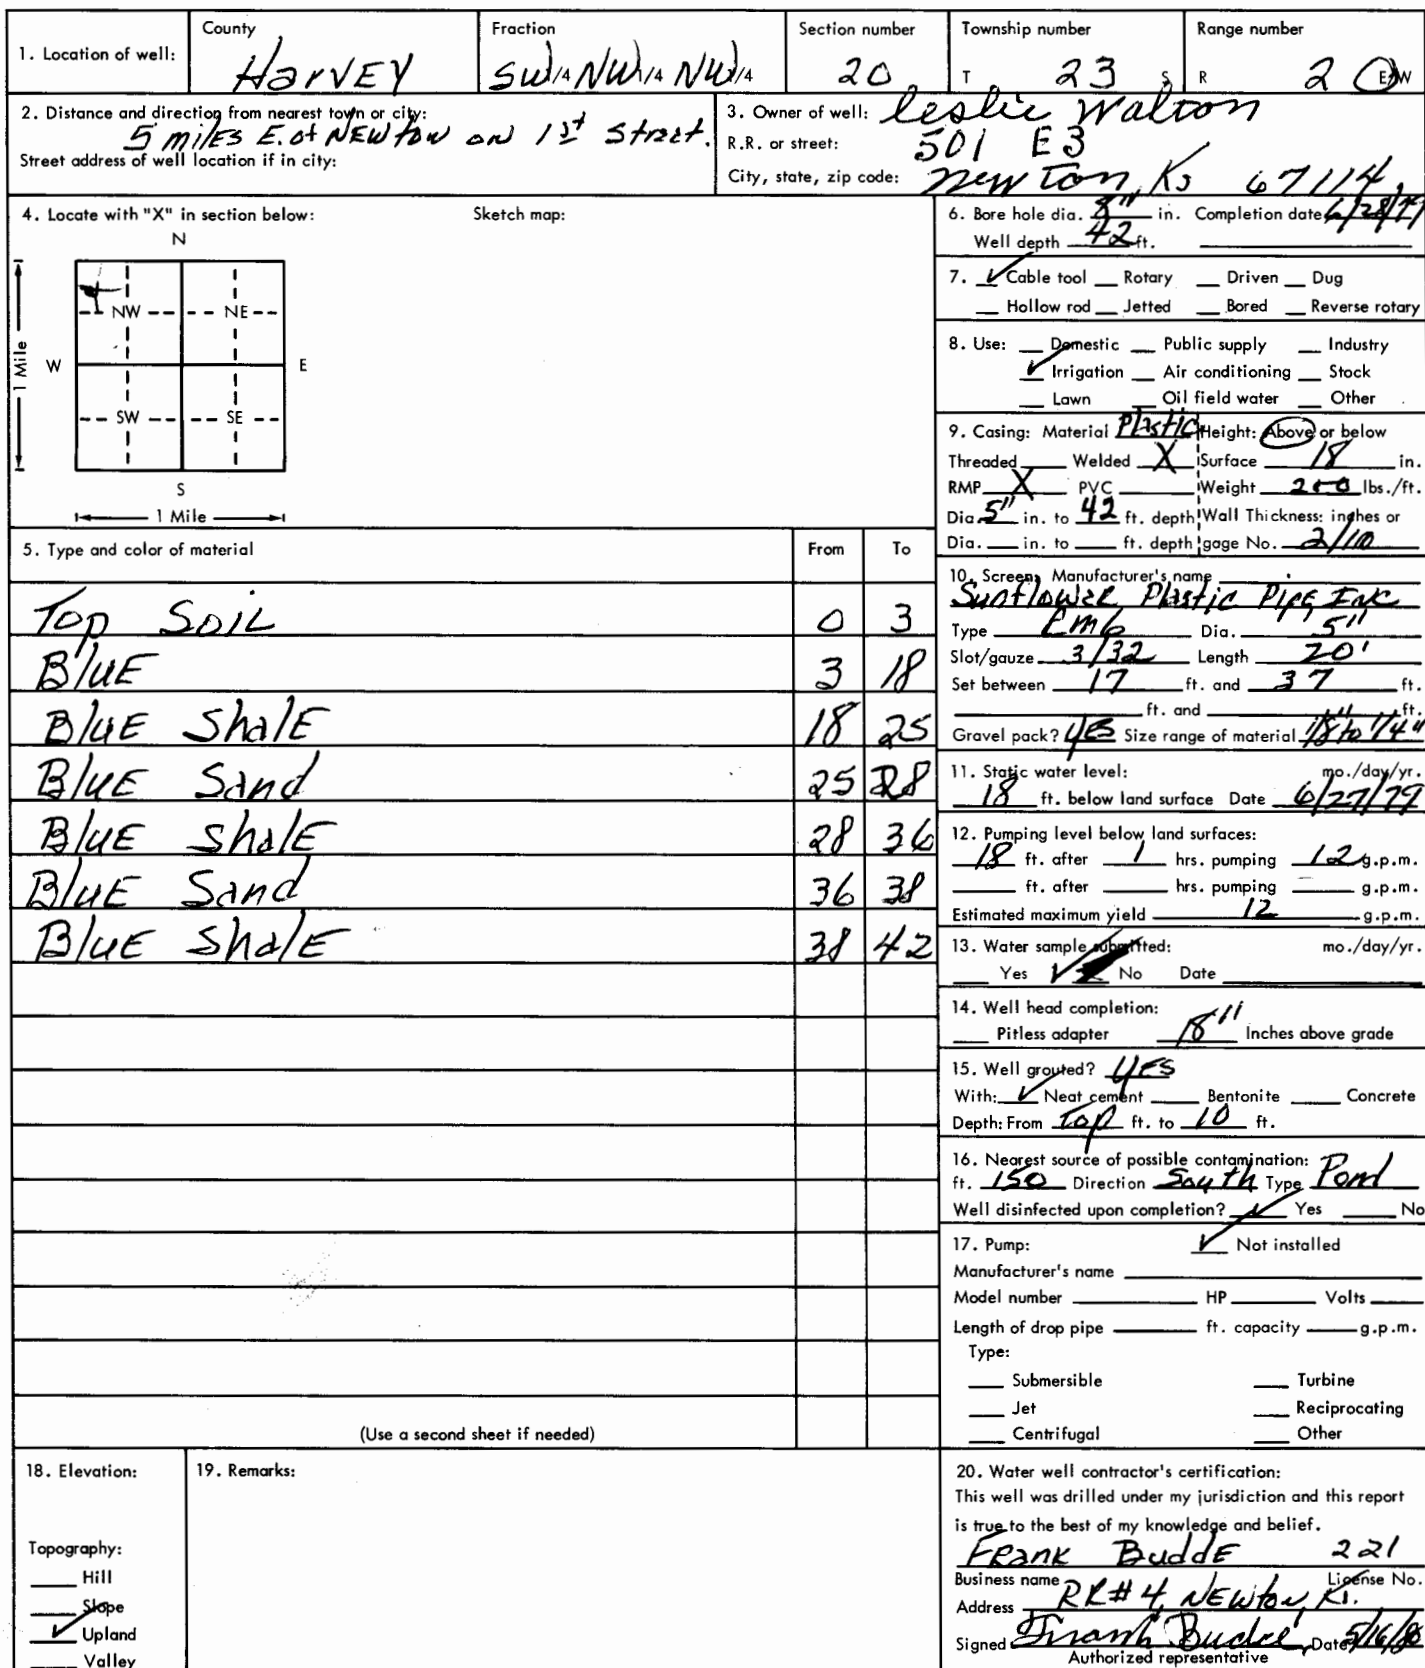 1. Location of well:
County
Harvey
Fraction
SW 1/4 NW 1/4 NW 1/4
Section number
20
Township number
T 23 S
Range number
R 2 E/W
2. Distance and direction from nearest town or city:
5 miles E. of Newton on 1st Street.
Street address of well location if in city:
3. Owner of well: Leslie Walton
R.R. or street: 501 E 3
City, state, zip code: Newton, Ks 67114
4. Locate with "X" in section below:
Sketch map:
N
NW NE
1 Mile W E
SW SE
S
1 Mile
5. Type and color of material From To
Top Soil 0 3
Blue 3 18
Blue Shale 18 25
Blue Sand 25 28
Blue Shale 28 36
Blue Sand 36 38
Blue Shale 38 42
(Use a second sheet if needed)
6. Bore hole dia. 8" in. Completion date 6/28/79
Well depth 42 ft.
7. ✓ Cable tool Rotary Driven Dug
Hollow rod Jetted Bored Reverse rotary
8. Use: Domestic Public supply Industry
✓ Irrigation Air conditioning Stock
Lawn Oil field water Other
9. Casing: Material Plastic Height: Above or below
Threaded Welded X Surface 18 in.
RMP X PVC Weight 200 lbs./ft.
Dia. 5" in. to 42 ft. depth Wall Thickness: inches or
Dia. in. to ft. depth gage No. 2/10
10. Screen: Manufacturer's name
Sunflower Plastic Pipe, Inc
Type Dia. 5"
Slot/gauze 3/32 Length 20'
Set between 17 ft. and 37 ft.
ft. and ft.
Gravel pack? Yes Size range of material 1/8" to 1/4"
11. Static water level: mo./day/yr.
18 ft. below land surface Date 6/27/79
12. Pumping level below land surfaces:
18 ft. after 1 hrs. pumping 12 g.p.m.
ft. after hrs. pumping g.p.m.
Estimated maximum yield 12 g.p.m.
13. Water sample submitted: mo./day/yr.
Yes ✓ No Date
14. Well head completion:
Pitless adapter 18" Inches above grade
15. Well grouted? Yes
With: ✓ Neat cement Bentonite Concrete
Depth: From Top ft. to 10 ft.
16. Nearest source of possible contamination:
ft. 150 Direction South Type Pond
Well disinfected upon completion? ✓ Yes No
17. Pump: ✓ Not installed
Manufacturer's name
Model number HP Volts
Length of drop pipe ft. capacity g.p.m.
Type:
Submersible Turbine
Jet Reciprocating
Centrifugal Other
18. Elevation:
Topography:
Hill
Slope
✓ Upland
Valley
19. Remarks:
20. Water well contractor's certification:
This well was drilled under my jurisdiction and this report
is true to the best of my knowledge and belief.
Frank Budde 221
Business name License No.
Address RR#4, Newton, Ks.
Signed Frank Budde Date 5/16/80
Authorized representative